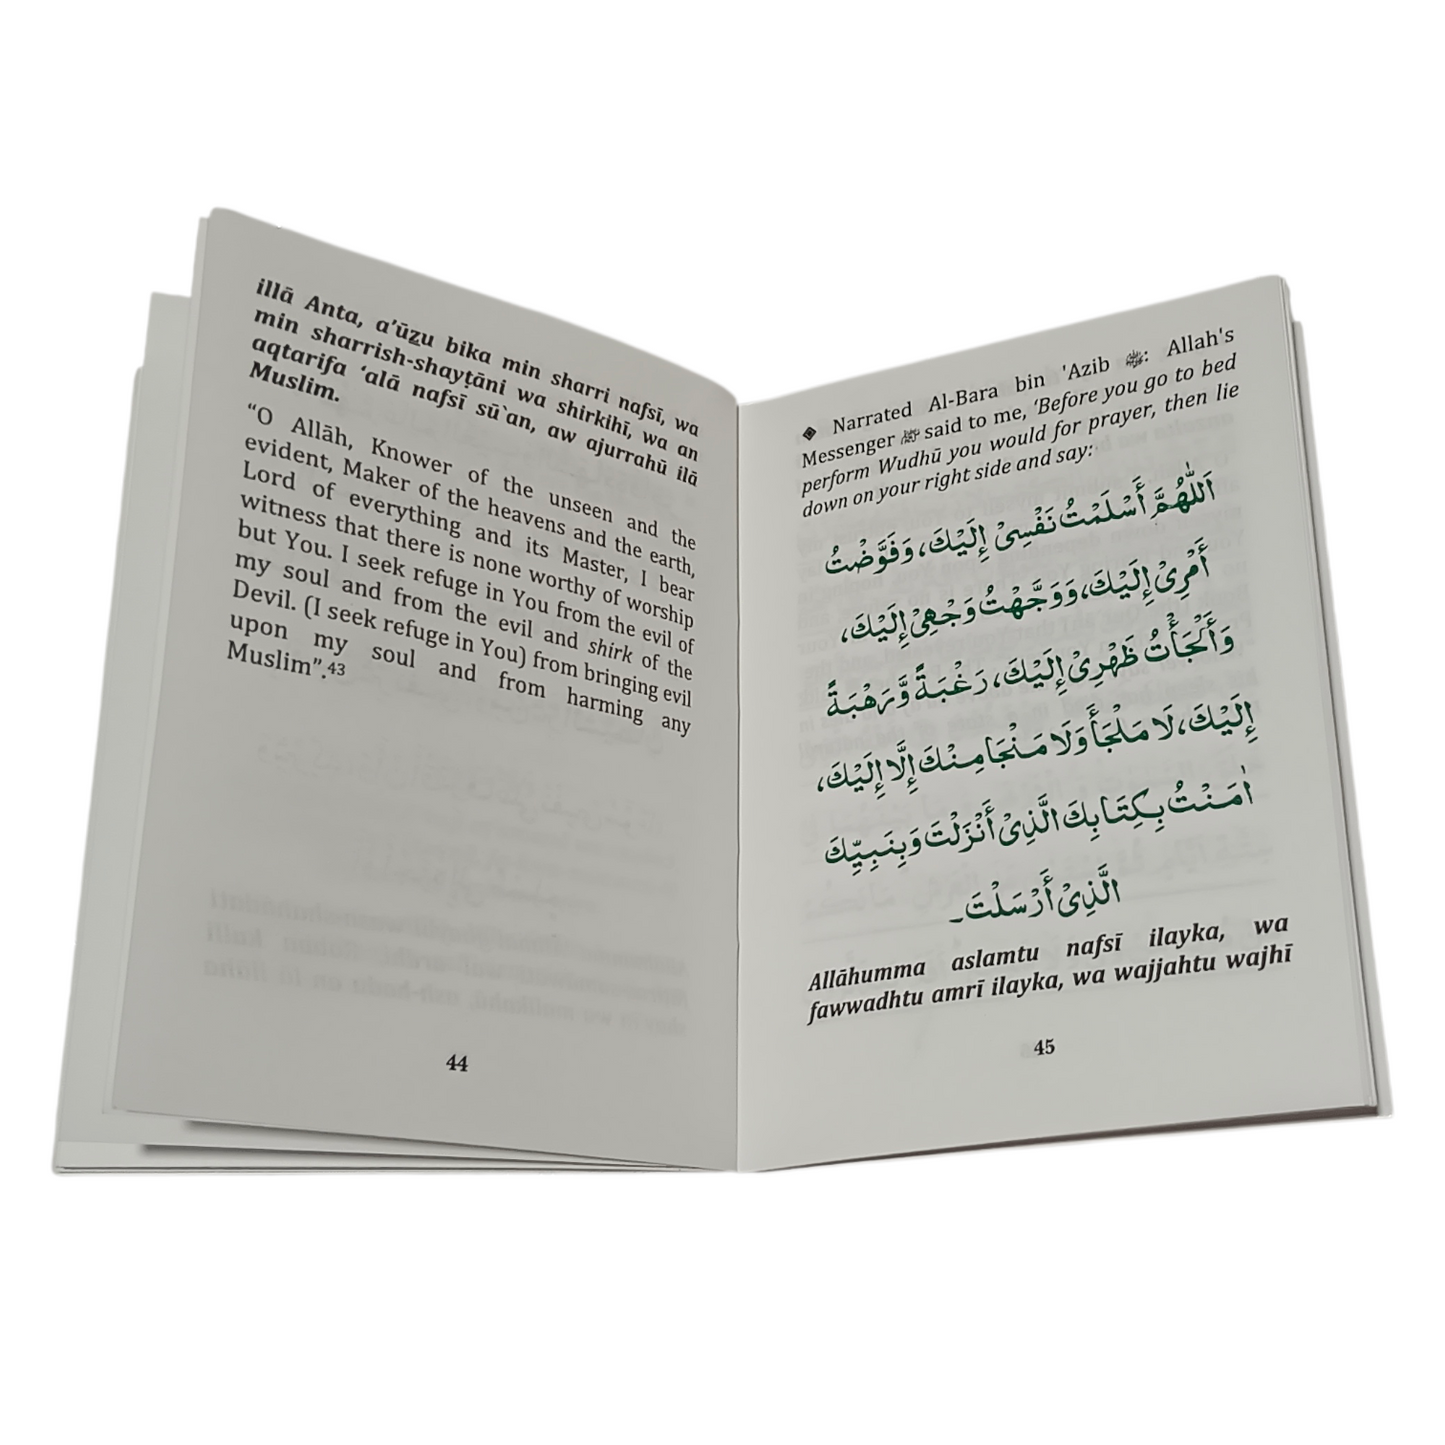 illā Anta, a’ūẕu bika min sharri nafsī, wa
min sharrish-shayṭāni wa shirkihī, wa an
aqtarifa ‘alā nafsī sū`an, aw ajurrahū ilā
Muslim.
“O Allāh, Knower of the unseen and the
evident, Maker of the heavens and the earth,
Lord of everything and its Master, I bear
witness that there is none worthy of worship
but You. I seek refuge in You from the evil of
my soul and from the evil and shirk of the
Devil. (I seek refuge in You) from bringing evil
upon my soul and from harming any
Muslim”.43
44
◈ Narrated Al-Bara bin 'Azib : Allah's
Messenger ﷺ said to me, ‘Before you go to bed
perform Wudhū you would for prayer, then lie
down on your right side and say:
اَللّٰهُمَّ أَسْلَمْتُ نَفْسِيْ إِلَيْكَ، وَفَوَّضْتُ
أَمْرِيْ إِلَيْكَ، وَوَجَّهْتُ وَجْهِيْ إِلَيْكَ،
وَأَلْجَأْتُ ظَهْرِيْ إِلَيْكَ، رَغْبَةً وَّرَهْبَةً
إِلَيْكَ، لَا مَلْجَأَ وَلَا مَنْجَا مِنْكَ إِلَّا إِلَيْكَ،
اٰمَنْتُ بِكِتَابِكَ الَّذِيْ أَنْزَلْتَ وَبِنَبِيِّكَ
الَّذِيْ أَرْسَلْتَ۔
Allāhumma aslamtu nafsī ilayka, wa
fawwadhtu amrī ilayka, wa wajjahtu wajhī
45